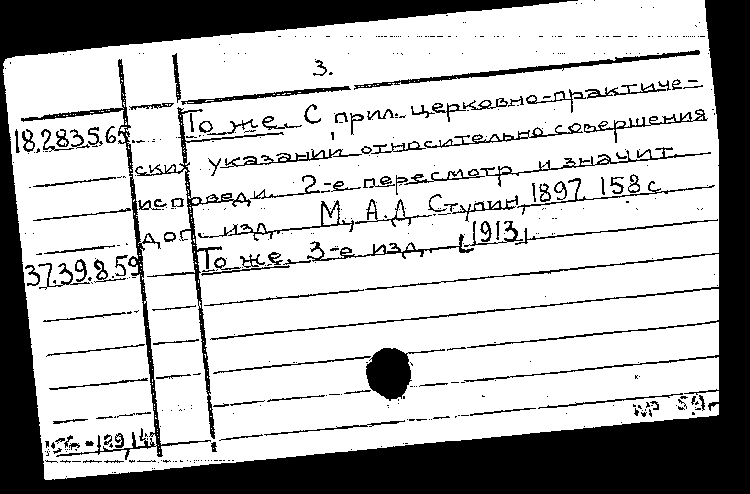 3.
18.2835.65 То же. С прил. церковно-практиче-
ских указаний относительно совершения
исповеди. 2-е пересмотр. и значит.
доп. изд. М., А.Д. Ступин, 1897. 158 с.
37.39.8.59 То же. 3-е изд. [1913].